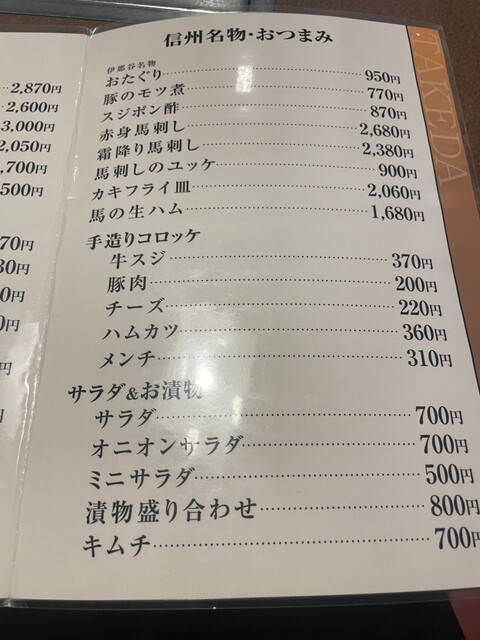 信州名物・おつまみ
伊那谷名物
おたぐり 950円
豚のモツ煮 770円
スジポン酢 870円
赤身馬刺し 2,680円
霜降り馬刺し 2,380円
馬刺しのユッケ 900円
カキフライ皿 2,060円
馬の生ハム 1,680円
手造りコロッケ
牛スジ 370円
豚肉 200円
チーズ 220円
ハムカツ 360円
メンチ 310円
サラダ&お漬物
サラダ 700円
オニオンサラダ 700円
ミニサラダ 500円
漬物盛り合わせ 800円
キムチ 700円
TAKEDA
2,870円
2,600円
3,000円
2,050円
,700円
500円
70円
30円
0円
0円
円
円